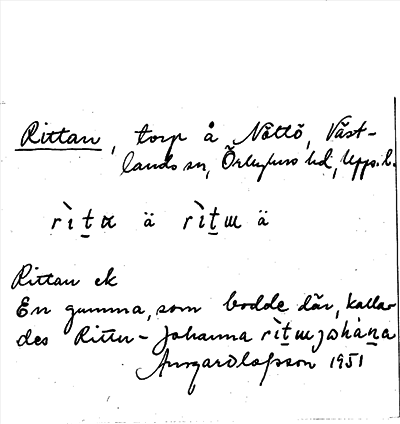 Rittan, torp å Nöttö, Väst-
lands sn, Örbyhus hd, Upps.l.
rìt̠α ä rìt̠ɯ ä
Rittan ek
En gumma, som bodde där, kalla-
des Rittu-Johanna rìt̠ɯjohàn̠a
Olofsson 1951